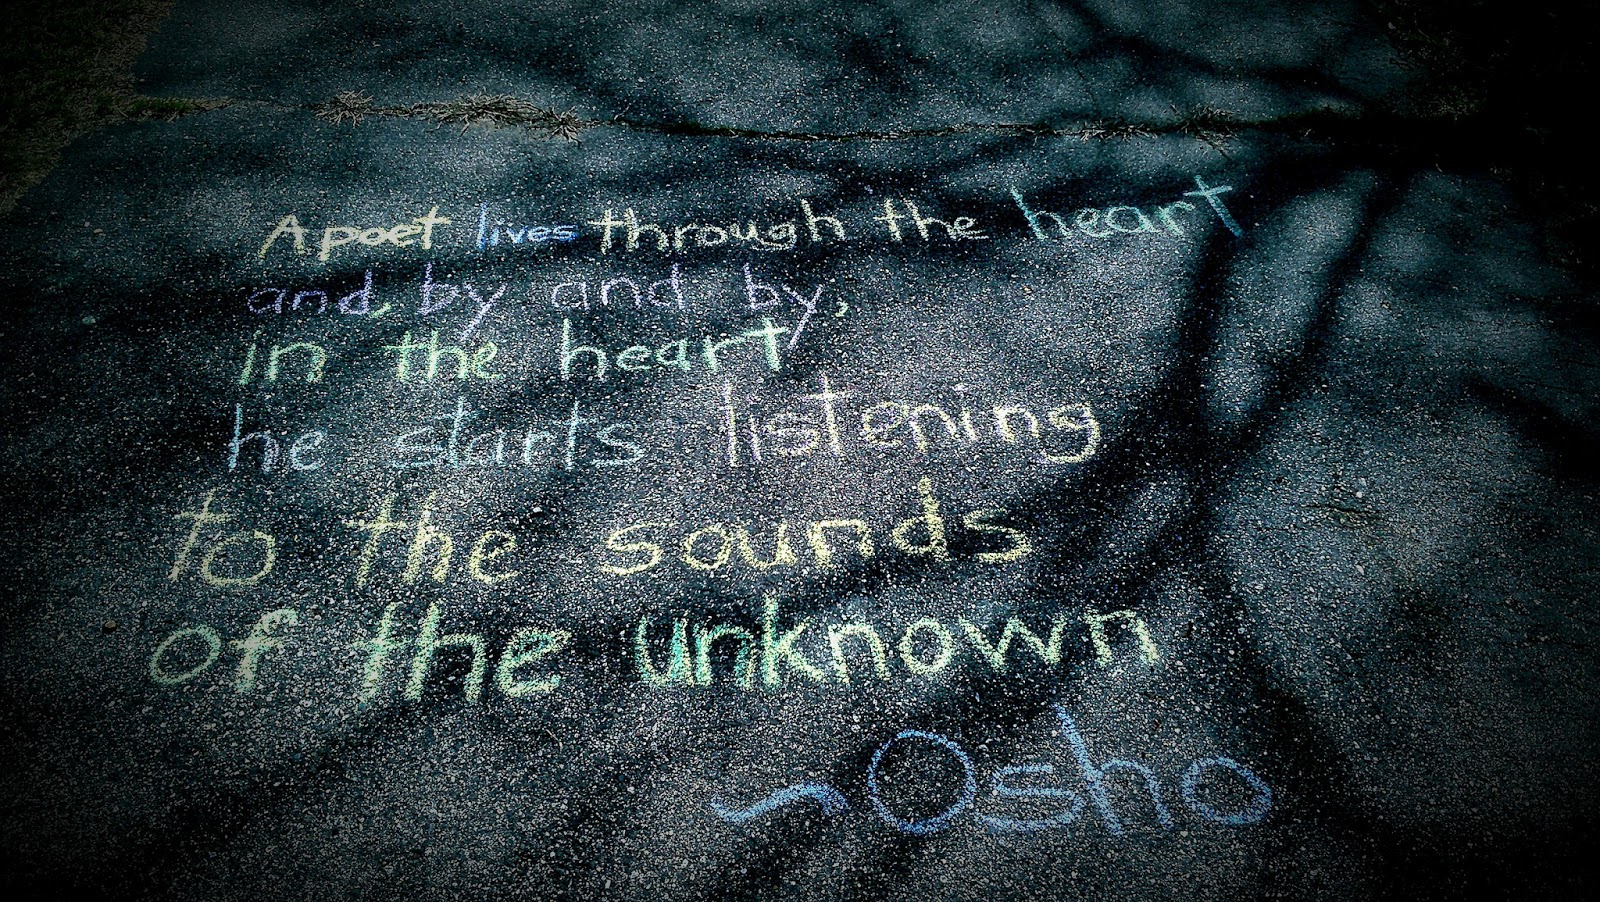 A poet lives through the heart
and, by and by,
in the heart
he starts listening
to the sounds
of the unknown
~Osho